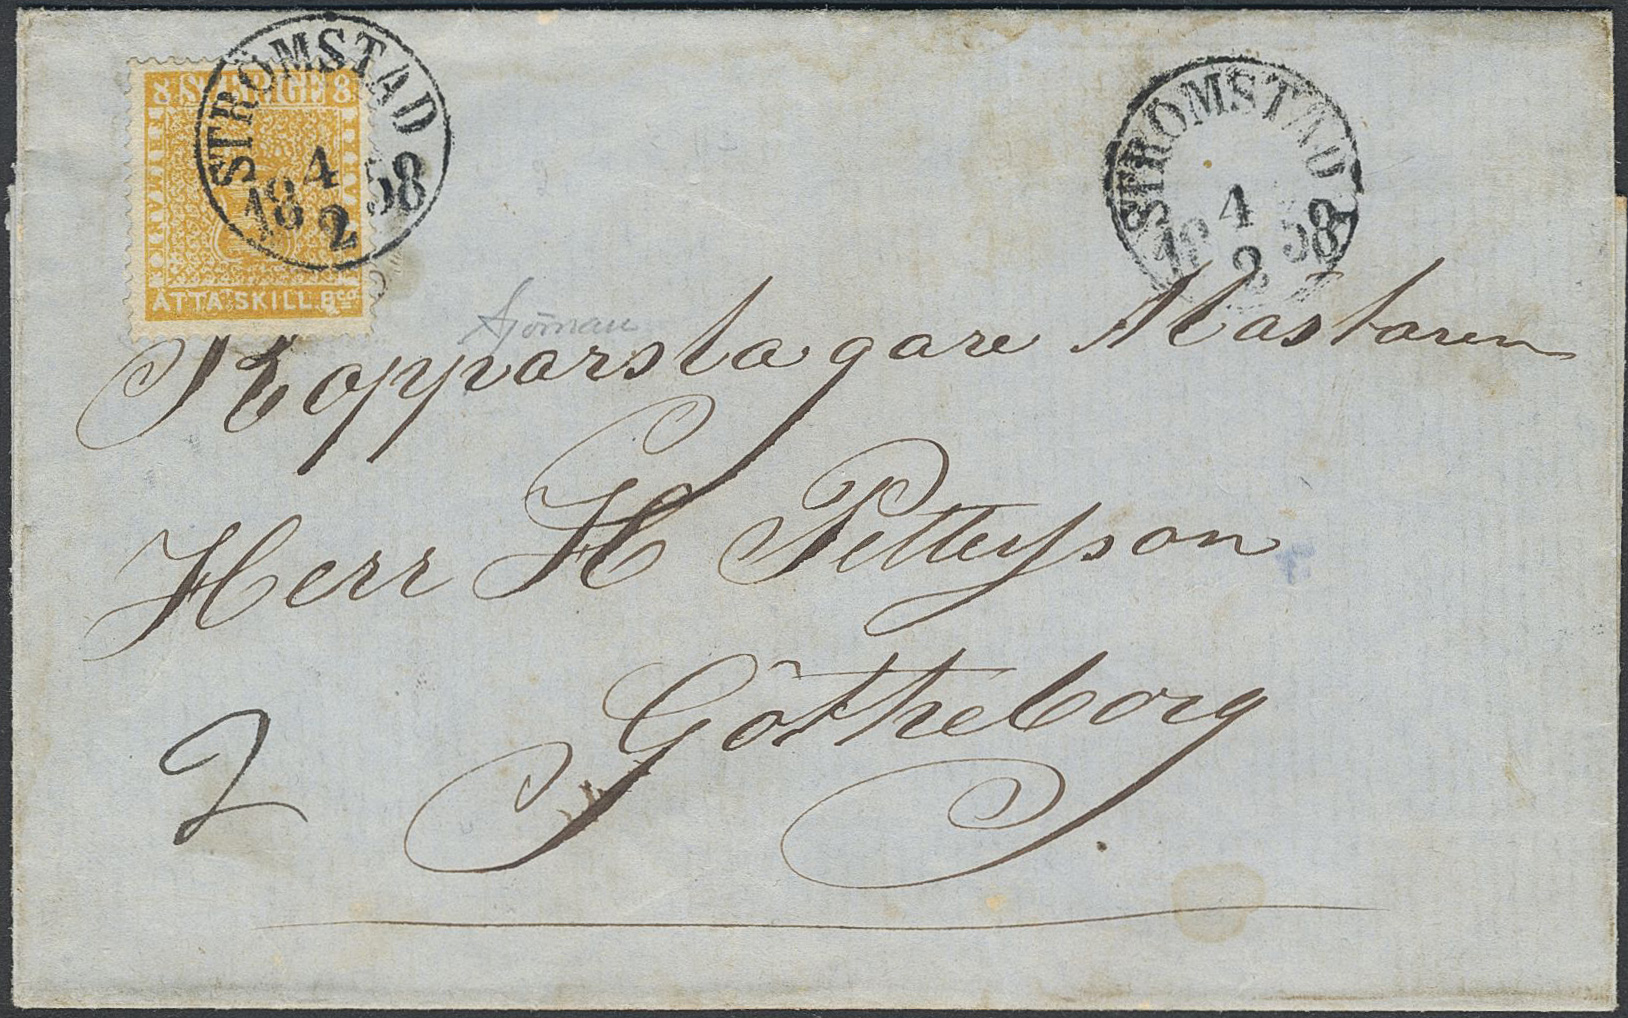 8 SVERIGE 8
ÅTTA SKILL. Bco
STRÖMSTAD
4
18 58
2
STRÖMSTAD
4
18 58
2
Sjöman
Kopparslagare Mästaren
Herr H Pettersson
Götheborg
2